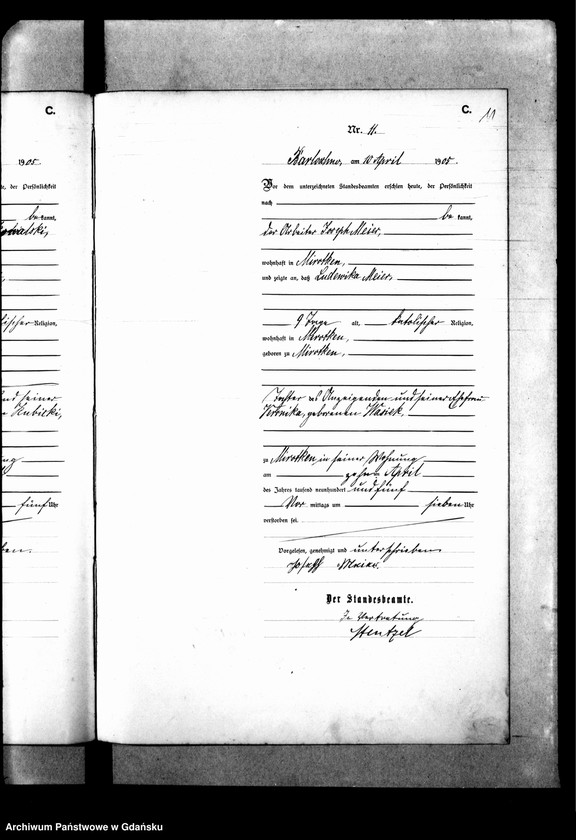 C.
1905
te, der Persönlichkeit
be kannt,
Religion,
und seiner
Kubicki,
fünf Uhr
C.
11
Nr. 11.
am 10 April 1905.
Vor dem unterzeichneten Standesbeamten erschien heute, der Persönlichkeit
nach
be kannt,
der Arbeiter Joseph Meier,
wohnhaft in Mirotken,
und zeigte an, daß Ludowika Meier,
9 Tage alt, katolischer Religion,
wohnhaft in Mirotken,
geboren zu Mirotken,
Tochter des Anzeigenden und seiner Ehefrau
Veronika, geborenen Wasiek,
zu Mirotken in seiner Wohnung
am zehnten April
des Jahres tausend neunhundert und fünf
Vor mittags um sieben Uhr
verstorben sei.
Vorgelesen, genehmigt und unterschrieben.
Joseff Meier.
Der Standesbeamte.
In Vertretung
Hentzel
Archiwum Państwowe w Gdańsku